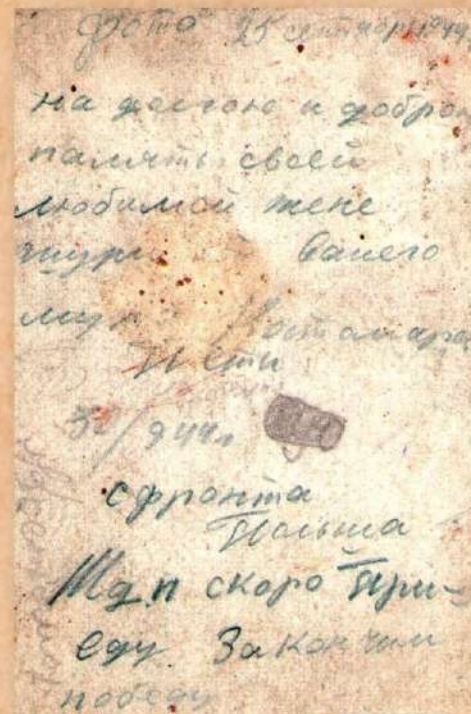 Фото 25 сентября 194
на долгою и добрую
память своей
любимой жене
шуре вашего
мужа
Пети
/9 44г
с фронта
Польша
Жди скоро При-
еду. Закончим
победу